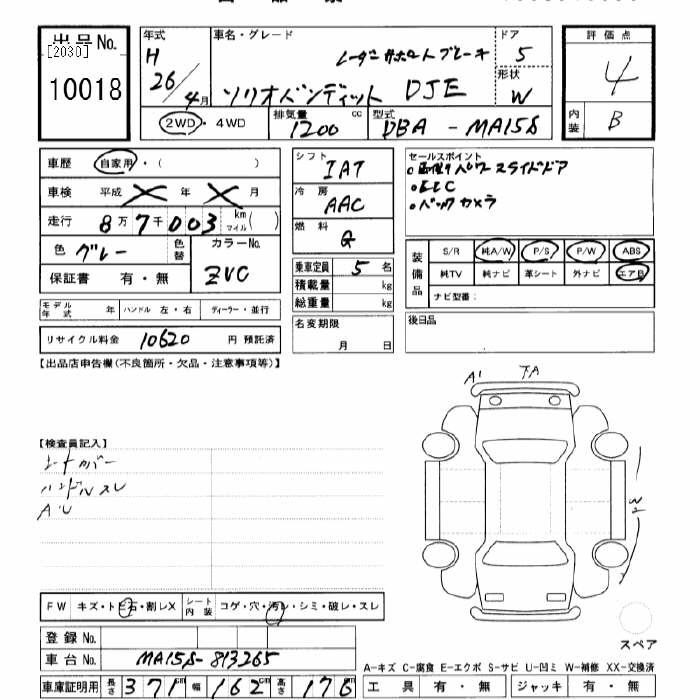 出品No.
[2030]
10018
年式
H
26/4月
車名・グレード
レーダーサポートブレーキ
ソリオバンディット DJE
ドア
5
形状
W
評価点
4
内装
B
2WD・4WD
排気量
1200 cc
型式
DBA - MA15S
車歴 自家用・( )
車検 平成 X 年 X 月
走行 8万7千003 km マイル( )
色 グレー 色替
カラーNo.
ZVC
保証書 有・無
モデル年式 年 ハンドル 左・右 ディーラー・並行
リサイクル料金 10620 円 預託済
シフト
IAT
冷房
AAC
燃料
G
乗車定員 5 名
積載量 kg
総重量 kg
名変期限
月 日
セールスポイント
。両側パワースライドドア
。ETC
。バックカメラ
装備品
S/R 純A/W P/S P/W ABS
純TV 純ナビ 革シート 外ナビ エアB
ナビ型番:
後日品
【出品店申告欄(不良箇所・欠品・注意事項等)】
【検査員記入】
シートカバー
ハンドルスレ
AU
A1
下A
W2
FW キズ・トビ石・割レX シート内装 コゲ・穴・汚レ・シミ・破レ・スレ
登録No.
車台No. MA15S-813265
車庫証明用 長さ 371 cm 幅 162 cm 高さ 176 cm
スペア
A-キズ C-腐食 E-エクボ S-サビ U-凹ミ W-補修 XX-交換済
工具 有・無 ジャッキ 有・無